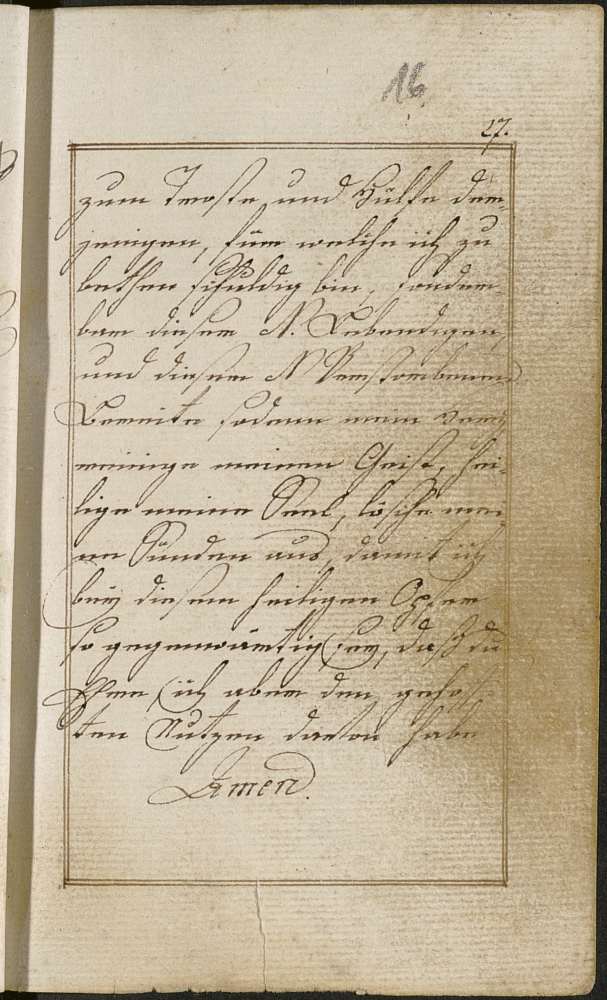 16
27.
zum Troste, und Hülfe der=
jenigen, füer welche ich zu
bethen schuldig bin, sonder=
bar diesen N. Lebendigen,
und diesen N Verstorbenen
Bereite sodann mein Herz,
reinige meinen Geist, hei=
lige meine Seel, lösche mei=
ne Sünden aus, damit ich
bey diesem heiligen Opfer
so gegenwärtig sey, daß du
Ehre, ich aber den gehof=
ten Nutzen darvon habe
Amen.